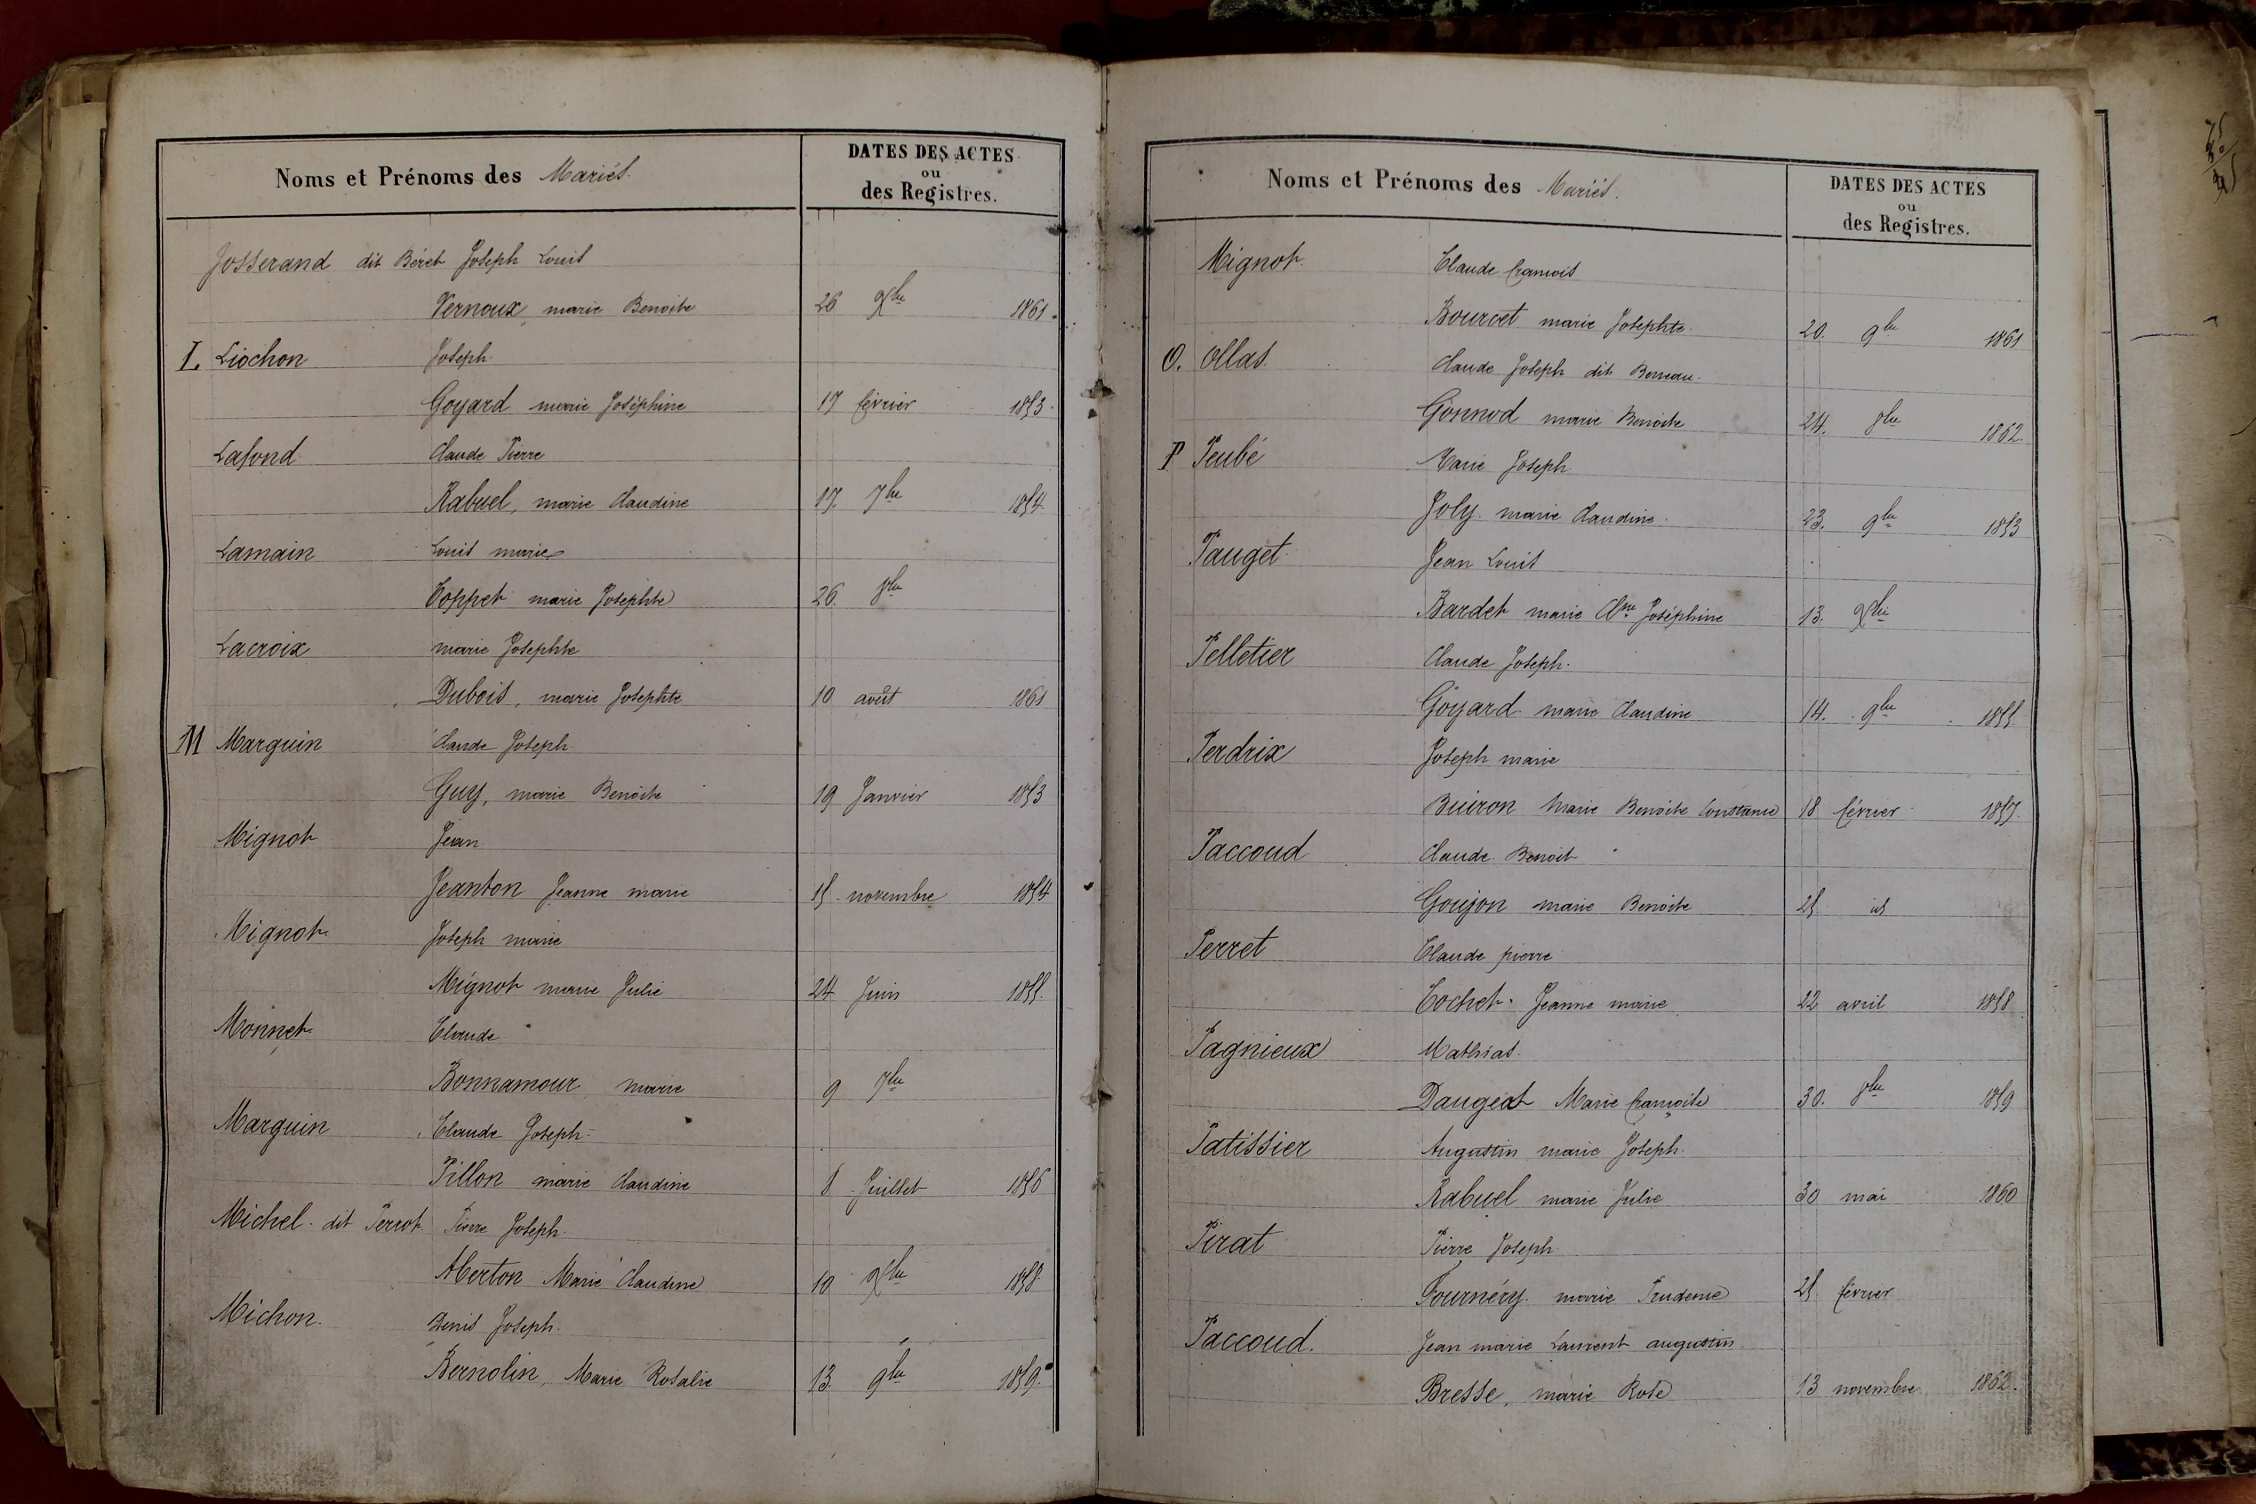 Noms et Prénoms des Mariés.
DATES DES ACTES
ou
des Registres.
Josserand dit Béret Joseph Louis
Vernoux marie Benoite 26 Xbre 1861.
L Liochon Joseph
Goyard marie Joséphine 17 février 1853.
Lafond Claude Pierre
Rabuel, marie Claudine 17. 7bre 1854
Lamain Louis marie
Coppet marie Josephte 26. 8bre
Lacroix marie Josephte
Dubois, marie Josephte 10 août 1861
M Marguin Claude Joseph
Guy, marie Benoite 19 Janvier 1853
Mignot Jean
Jeanton Jeanne marie 15 novembre 1854
Mignot Joseph marie
Mignot marie Julie 24 Juin 1855.
Monnet Claude
Bonnamour marie 9 7bre
Marguin Claude Joseph
Pillon marie Claudine 8 Juillet 1856
Michel dit Perrot Pierre Joseph
Merton Marie Claudine 10 Xbre 1858
Michon. Denis Joseph.
Bernolin, Marie Rosalie 13. 9bre 1859.
Noms et Prénoms des Mariés.
DATES DES ACTES
ou
des Registres.
Mignot Claude françois
Bourcet marie Josephte 20. 9bre 1861
O. Ollas. Claude Joseph dit
Gonnod marie Benoite 24. 8bre 1862
P Peubé Marie Joseph
Joly marie Claudine 23. 9bre 1853
Pauget Jean Louis
Bardet marie Cne Joséphine 13. Xbre
Pelletier Claude Joseph.
Goyard marie Claudine 14. 9bre 1855
Perdrix Joseph marie
Buiron Marie Benoite Constance 18 février 1857.
Paccoud Claude Benoit
Goujon marie Benoite 25 id
Perret Claude pierre
Cochet Jeanne marie 22 avril 1858
Pagnieux Mathias.
Daugeat Marie françoise 30. 8bre 1859
Patissier Augustin marie Joseph.
Rabuel marie Julie 30 mai 1860
Pirat Pierre Joseph
Fournéry marie Prudence 25 février
Paccoud. Jean marie Laurent augustin
Bresse, marie Rose 13 novembre 1862.